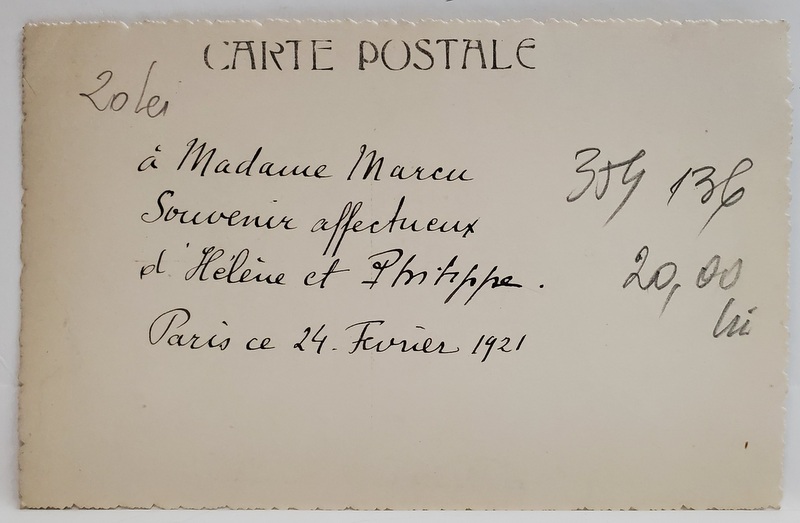 CARTE POSTALE
20 lei
à Madame Marcu
Souvenir affectueux
d'Hélène et Philippe.
Paris ce 24. Fevrier 1921
136
20,00
lei